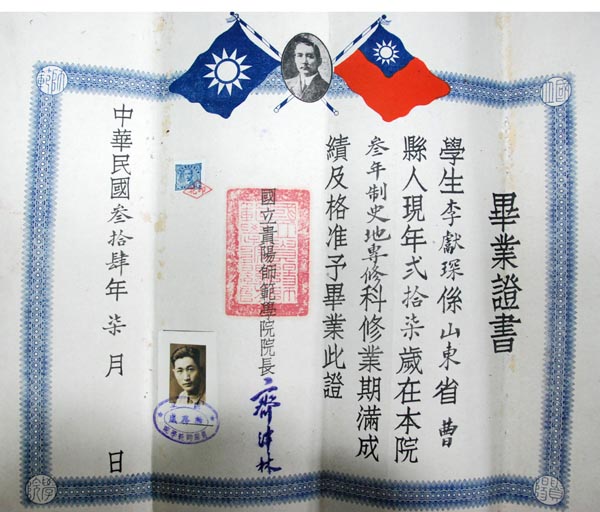 畢業證書
學生李獻琛係山東省曹
縣人現年弍拾柒歲在本院
叁年制史地專修科修業期滿成
績及格准予畢業此證
國立貴陽師範學院院長齊泮林
中華民國叁拾肆年柒月 日